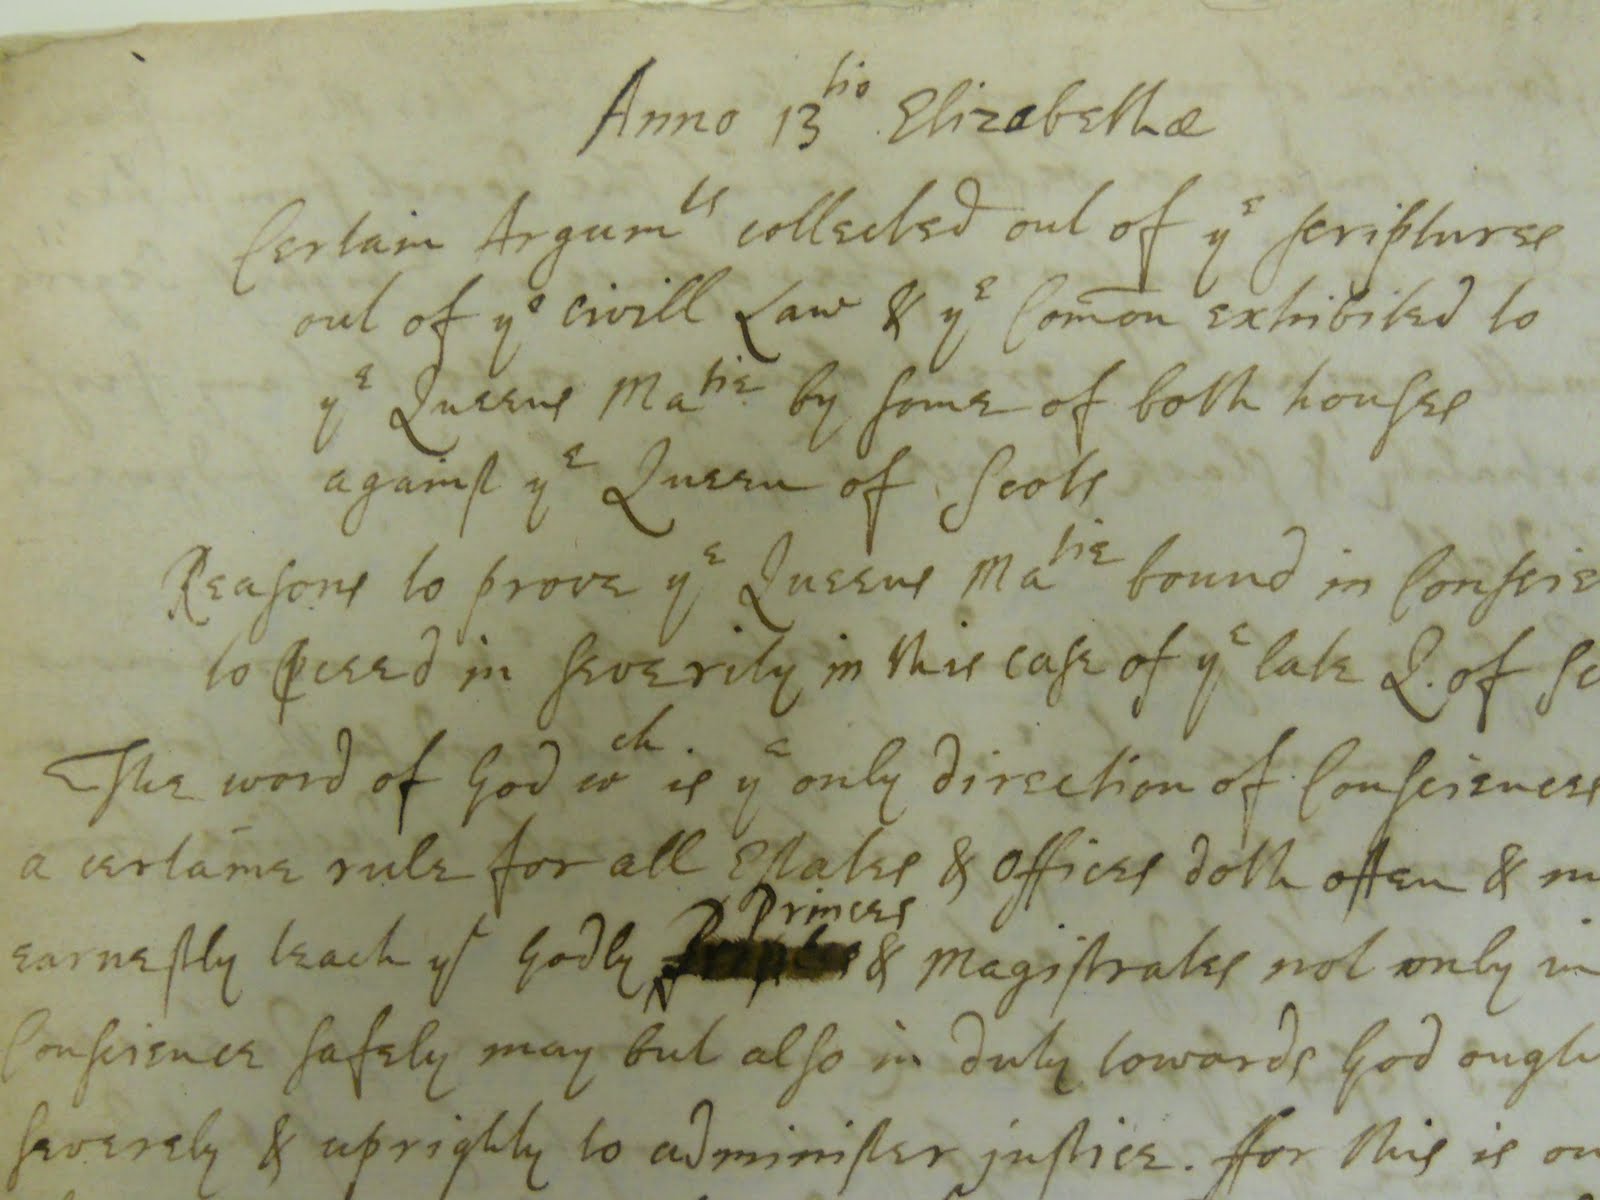 Anno 13tio Elizabethæ
Certain Argumts collected out of ye scriptures
out of ye Civill Law & ye Com̄on exhibited to
ye Queens Matie by some of both houses
against ye Queen of Scots
Reasons to prove ye Queens Matie bound in Conscie
to ꝓceed in severity in this case of ye late Q. of Sc
The word of God wch is ye only direction of Consciences
a certāine rule for all Estates & Offices doth often & m
Princes
earnestly teach yt Godly & Magistrates not only in
Conscience safely may but also in duty towards God ough
severely & uprightly to administer justice. ffor this is on